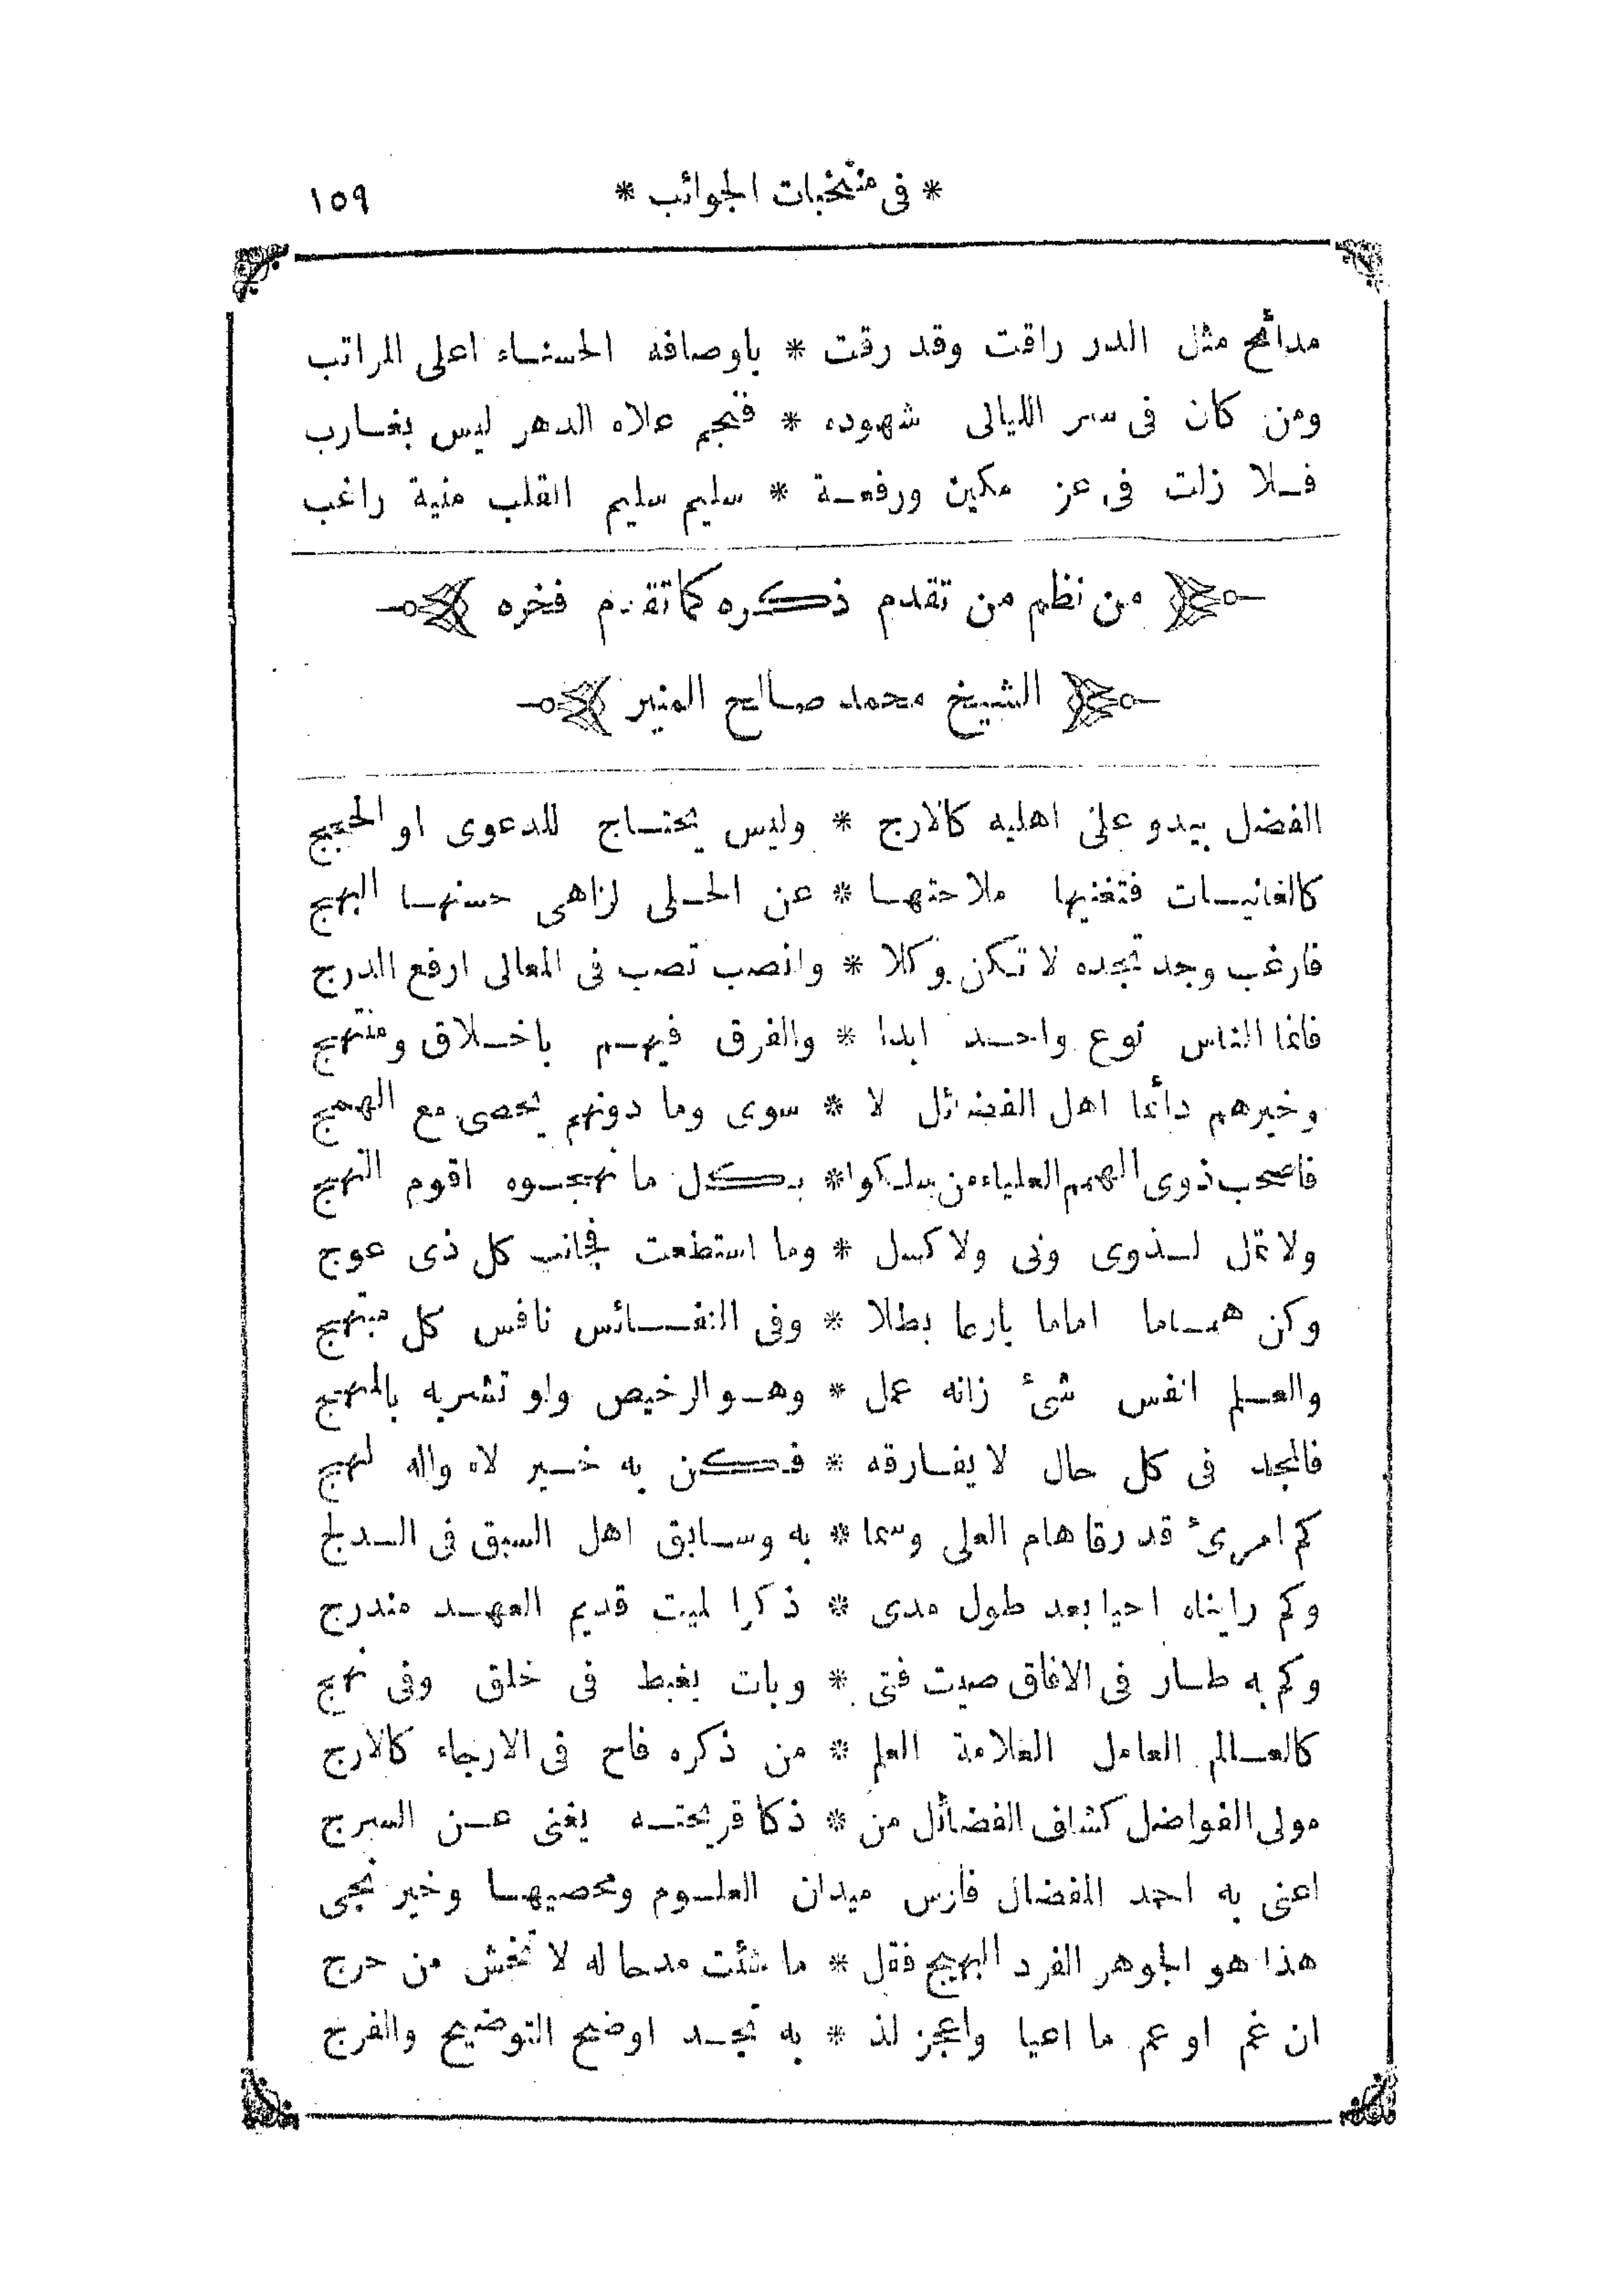 * فى منتخبات الجوائب * ١٥٩
مدائح مثل الدر راقت وقد رقت * باوصافه الحسناء اعلى المراتب
ومن كان فى سر الليالى شهوده * فنجم علاه الدهر ليس بغارب
فلا زلت فى عز مكين ورفعة * سليم سليم القلب منية راغب
من نظم من تقدم ذكره كما تقدم فخره
الشيخ محمد صالح المنير
الفضل يبدو على اهليه كالارج * وليس يحتاج للدعوى او الحجج
كالغانيات فتغنيها ملاحتها * عن الحلى لزاهى حسنها البهج
فارغب وجد تجده لا تكن وكلا * وانصب تصب فى المعالى ارفع الدرج
فانما الناس نوع واحد ابدا * والفرق فيهم باخلاق ومنتهج
وخيرهم دائما اهل الفضائل لا * سوى وما دونهم يحصى مع الهمج
فاصحب ذوى الهمم العلياء من سلكوا * بكل ما نهجوه اقوم النهج
ولا تمل لذوى ونى ولا كسل * وما استطعت فجانب كل ذى عوج
وكن هماما اماما بارعا بطلا * وفى النفائس نافس كل مبتهج
والعلم انفس شئ زانه عمل * وهو الرخيص ولو تشريه بالمهج
فالمجد فى كل حال لا يفارقه * فكن به خير لاه واله لهج
كم امرئ قد رقا هام العلى وسما * به وسابق اهل السبق فى الدلج
وكم رايناه احيا بعد طول مدى * ذكرا لميت قديم العهد مندرج
وكم به طار فى الافاق صيت فتى * وبات يغبط فى خلق وفى نهج
كالعالم العامل العلامة العلم * من ذكره فاح فى الارجاء كالارج
مولى الفواضل كشاف الفضائل من * ذكا قريحته يغنى عن السرج
اعنى به احمد المفضال فارس ميدان العلوم ومحصيها وخير نجى
هذا هو الجوهر الفرد البهيج فقل * ما شئت مدحا له لا تخش من حرج
ان غم او عم ما اعيا واعجز لذ * به تجد اوضح التوضيح والفرج